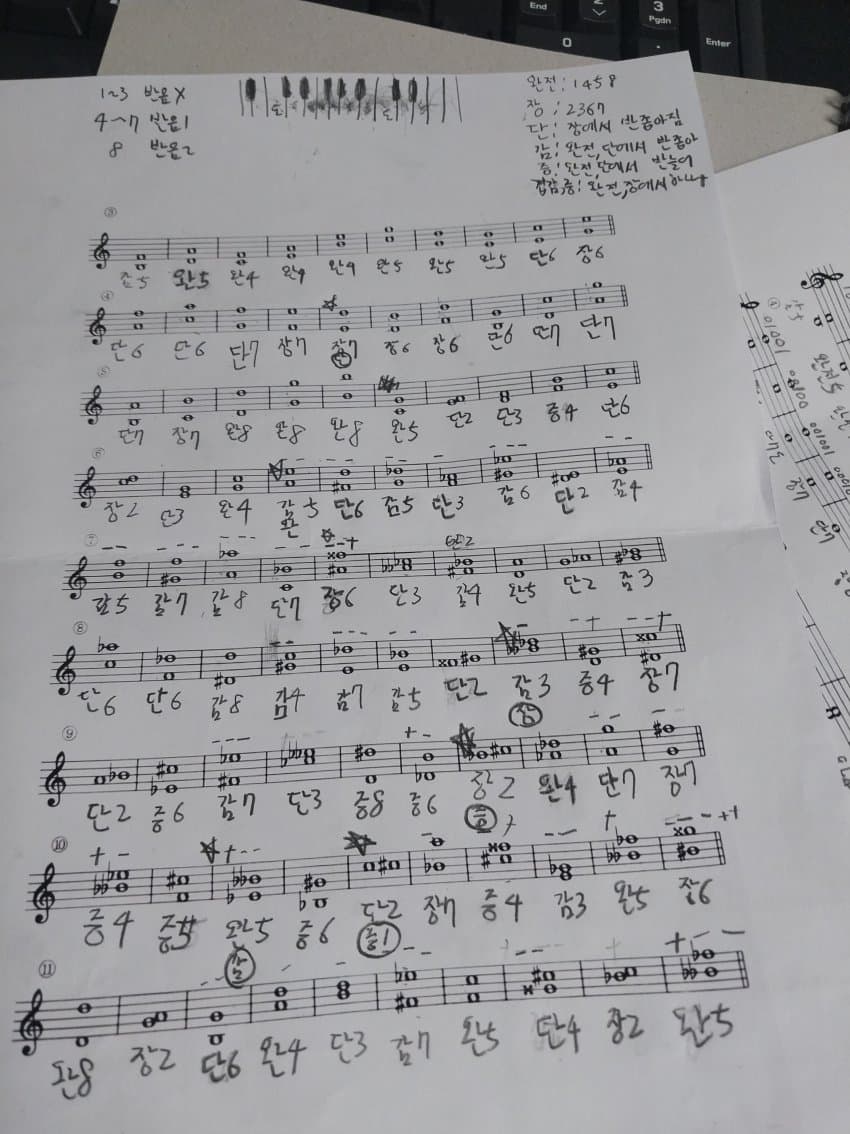 End
2
3
Pgdn
0
.
Enter
1~3 반음X
4~7 반음1
8 반음2
완전: 1458
장: 2367
단: 장에서 반좁아짐
감: 완전,단에서 반좁아
증: 완전, 반늘어
겹감,증: 완전,장에서
③
증5 완5 완4 완4 완4 완5 완5 완5 단6 장6
④
단6 단6 단7 장7 장7 증6 장6 단6 단7 단7
단
⑤
단7 장7 완8 완8 완8 완5 단2 단3 증4 단6
⑥
장2 단3 완4 감5 단6 감5 단3 감6 단2 감4
완
⑦
단2
감5 감7 감8 단7 장6 단3 감4 완5 단2 감3
⑧
단6 단6 감8 감4 감7 감5 단2 감3 증4 장7
장
⑨
단2 증6 감7 단3 증8 증6 장2 완4 단7 장7
증
⑩
증4 증5 완5 증6 단2 장7 증4 감3 완5 장6
감 증1
⑪
완8 장2 단6 완4 단3 감7 완5 단4 장2 완5
④